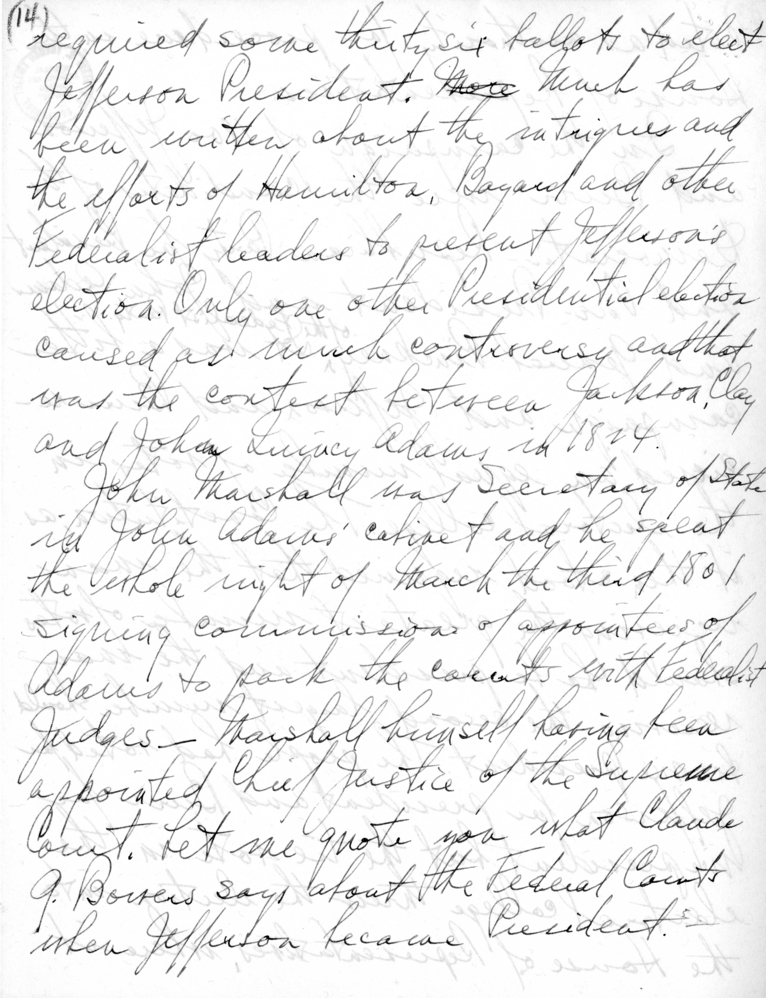 (14)
required some thirty six ballots to elect
Jefferson President. More Much has
been written about the intrigues and
the efforts of Hamilton, Bayard and other
Federalist leaders to prevent Jefferson's
election. Only one other Presidential election
caused as much controversy and that
was the contest between Jackson, Clay
and John Quincy Adams in 1824.
John Marshall was Secretary of State
in John Adams' cabinet and he spent
the whole night of March the third 1801
signing commissions of appointees of
Adams to pack the courts with Federalist
Judges — Marshall himself having been
appointed Chief Justice of the Supreme
Court. Let me quote you what Claude
G. Bowers says about the Federal Courts
when Jefferson became President:—